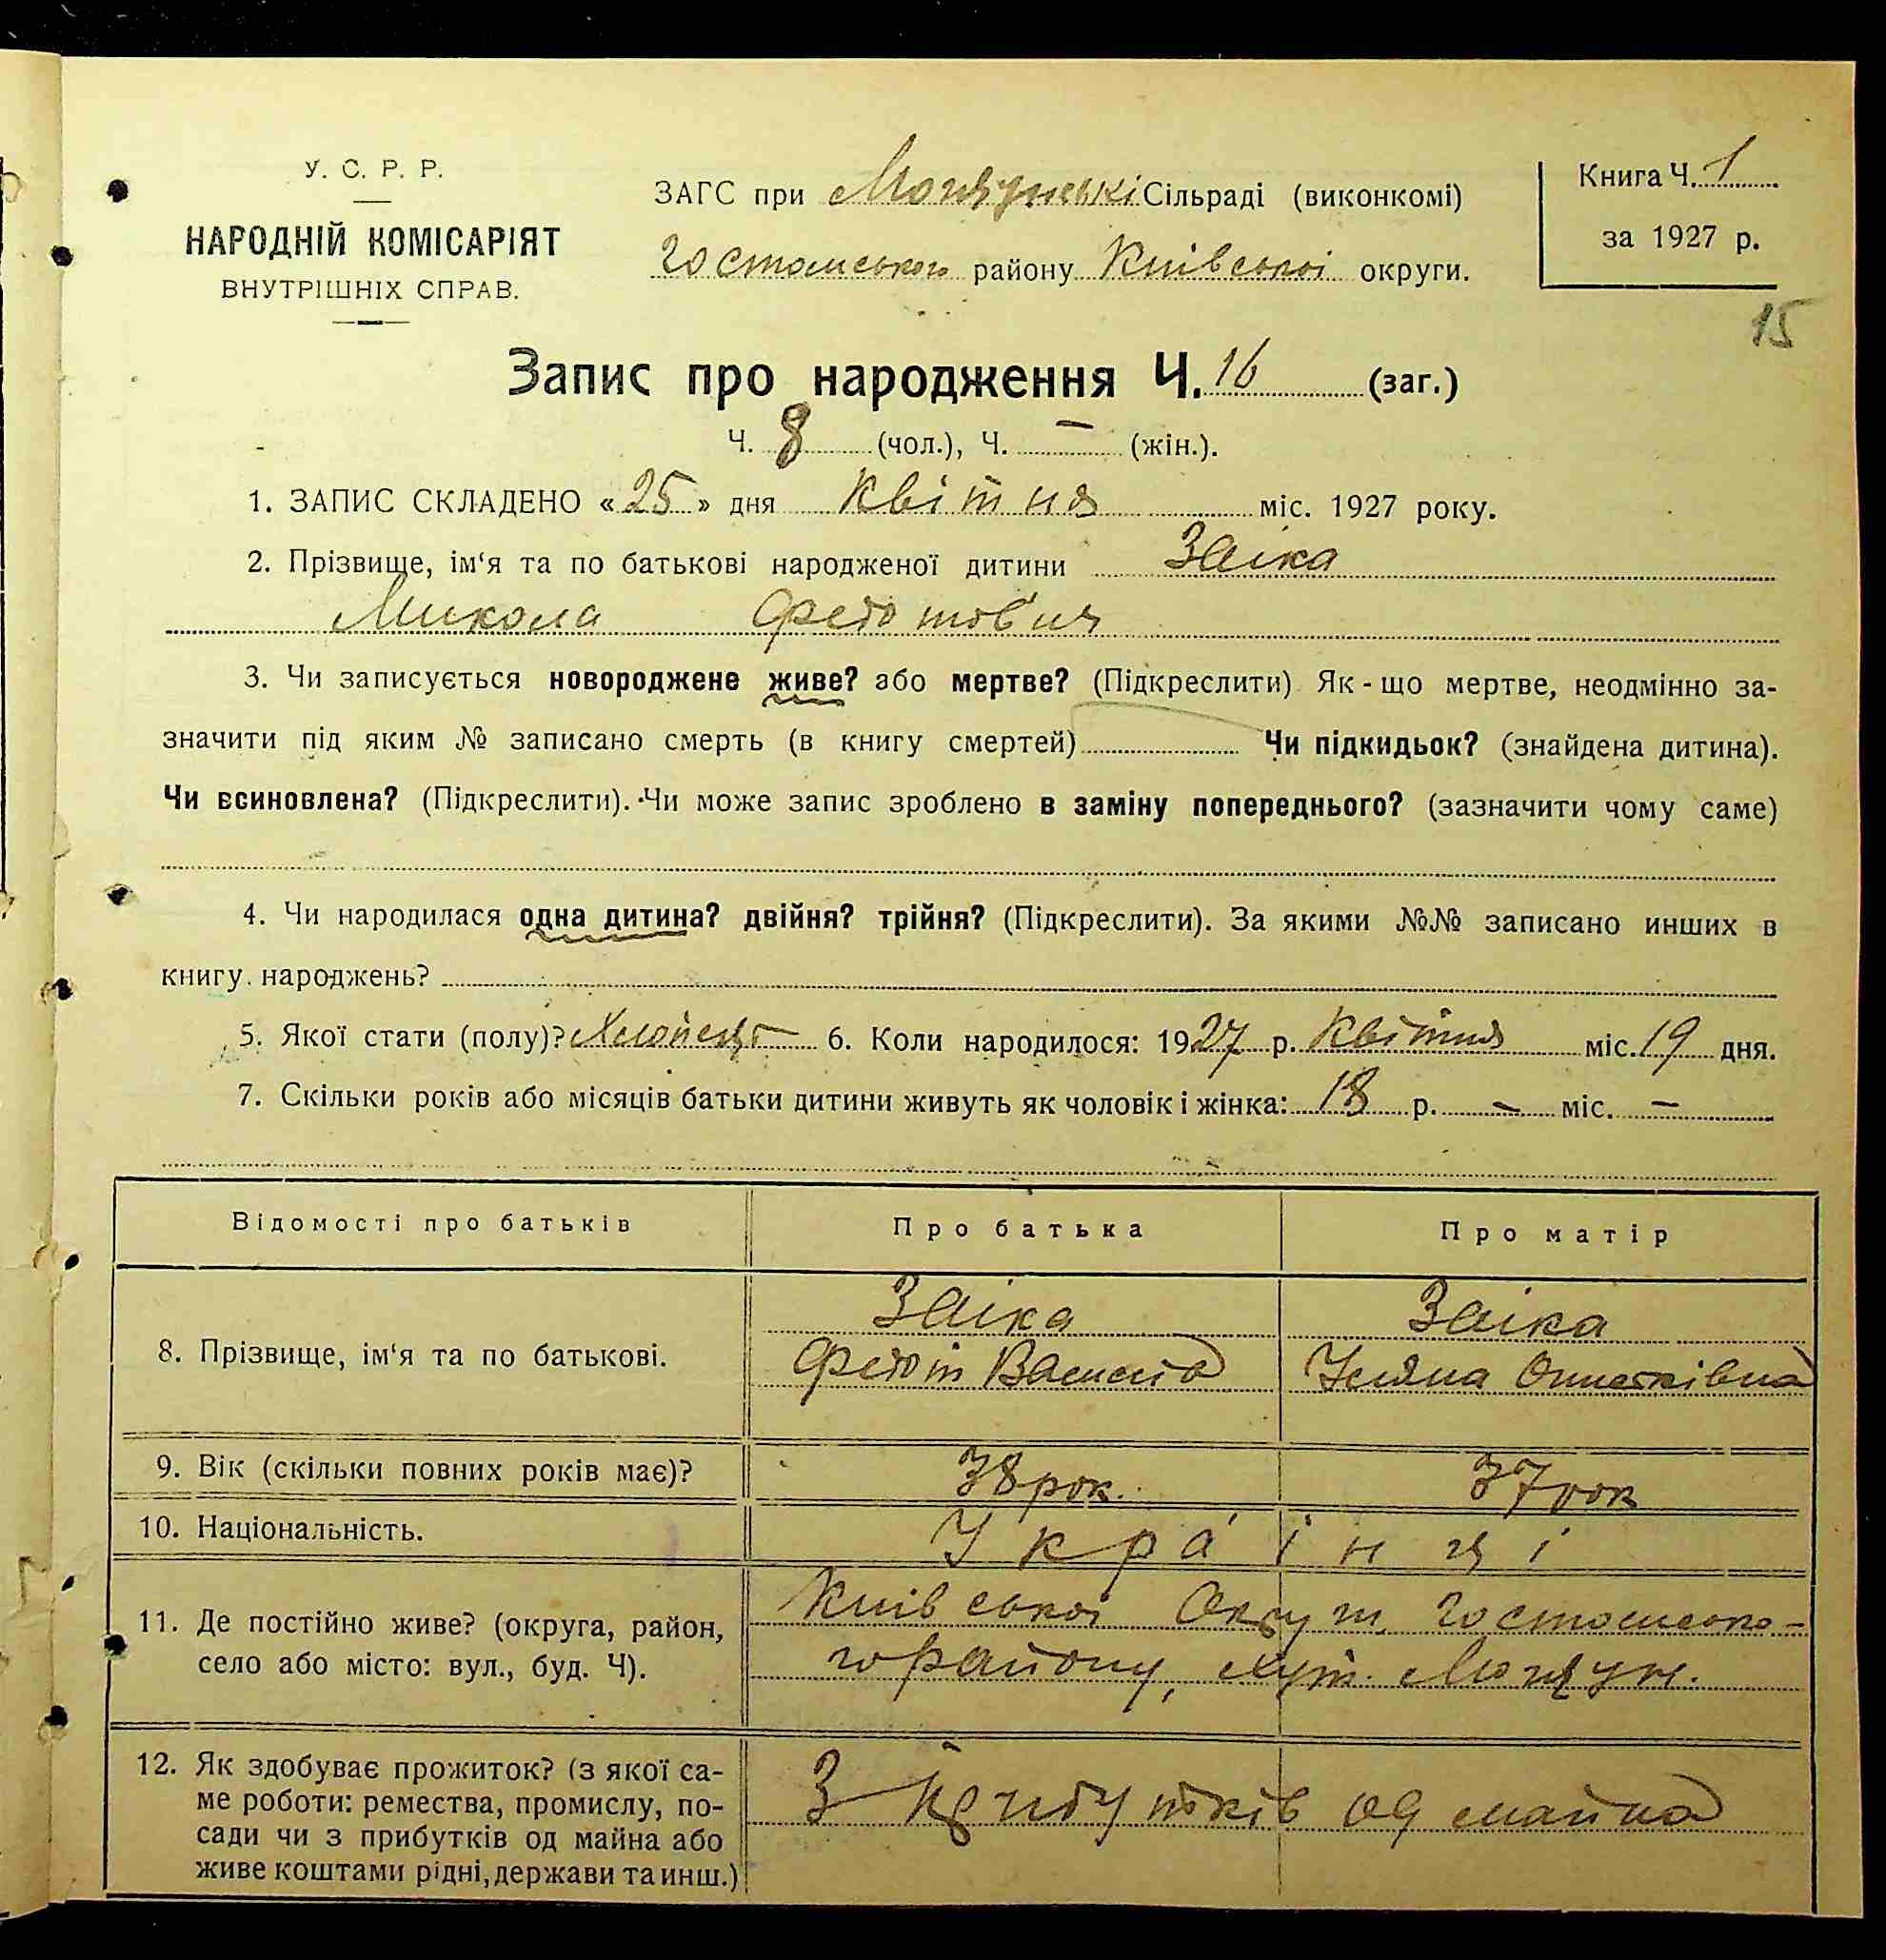 У. С. Р. Р.
НАРОДНІЙ КОМІСАРІЯТ
ВНУТРІШНІХ СПРАВ.
ЗАГС при Мощунські Сільраді (виконкомі)
Гостомського району Київської округи.
Книга Ч. 1
за 1927 р.
15
Запис про народження Ч. 16 (заг.)
Ч. 8 (чол.), Ч. — (жін.).
1. ЗАПИС СКЛАДЕНО «25» дня Квітня міс. 1927 року.
2. Прізвище, ім‘я та по батькові народженої дитини Заіка
Микола Федотов'ич
3. Чи записується новороджене живе? або мертве? (Підкреслити) Як-що мертве, неодмінно за-
значити під яким № записано смерть (в книгу смертей) Чи підкидьок? (знайдена дитина).
Чи всиновлена? (Підкреслити). Чи може запис зроблено в заміну попереднього? (зазначити чому саме)
4. Чи народилася одна дитина? двійня? трійня? (Підкреслити). За якими №№ записано инших в
книгу народжень?
5. Якої стати (полу)? Хлопець 6. Коли народилося: 1927 р. Квітня міс. 19 дня.
7. Скільки років або місяців батьки дитини живуть як чоловік і жінка: 18 р. — міс. —
Відомості про батьків
Про батька
Про матір
8. Прізвище, ім‘я та по батькові.
Заіка
Федот
Заіка
Уляна
9. Вік (скільки повних років має)?
38 рок.
37 рок
10. Національність.
Украінці
11. Де постійно живе? (округа, район,
село або місто: вул., буд. Ч).
Київської Округи, Гостомсько-
го району, хут. Мощун.
12. Як здобуває прожиток? (з якої са-
ме роботи: ремества, промислу, по-
сади чи з прибутків од майна або
живе коштами рідні, держави та инш.)
З прибутків од майна